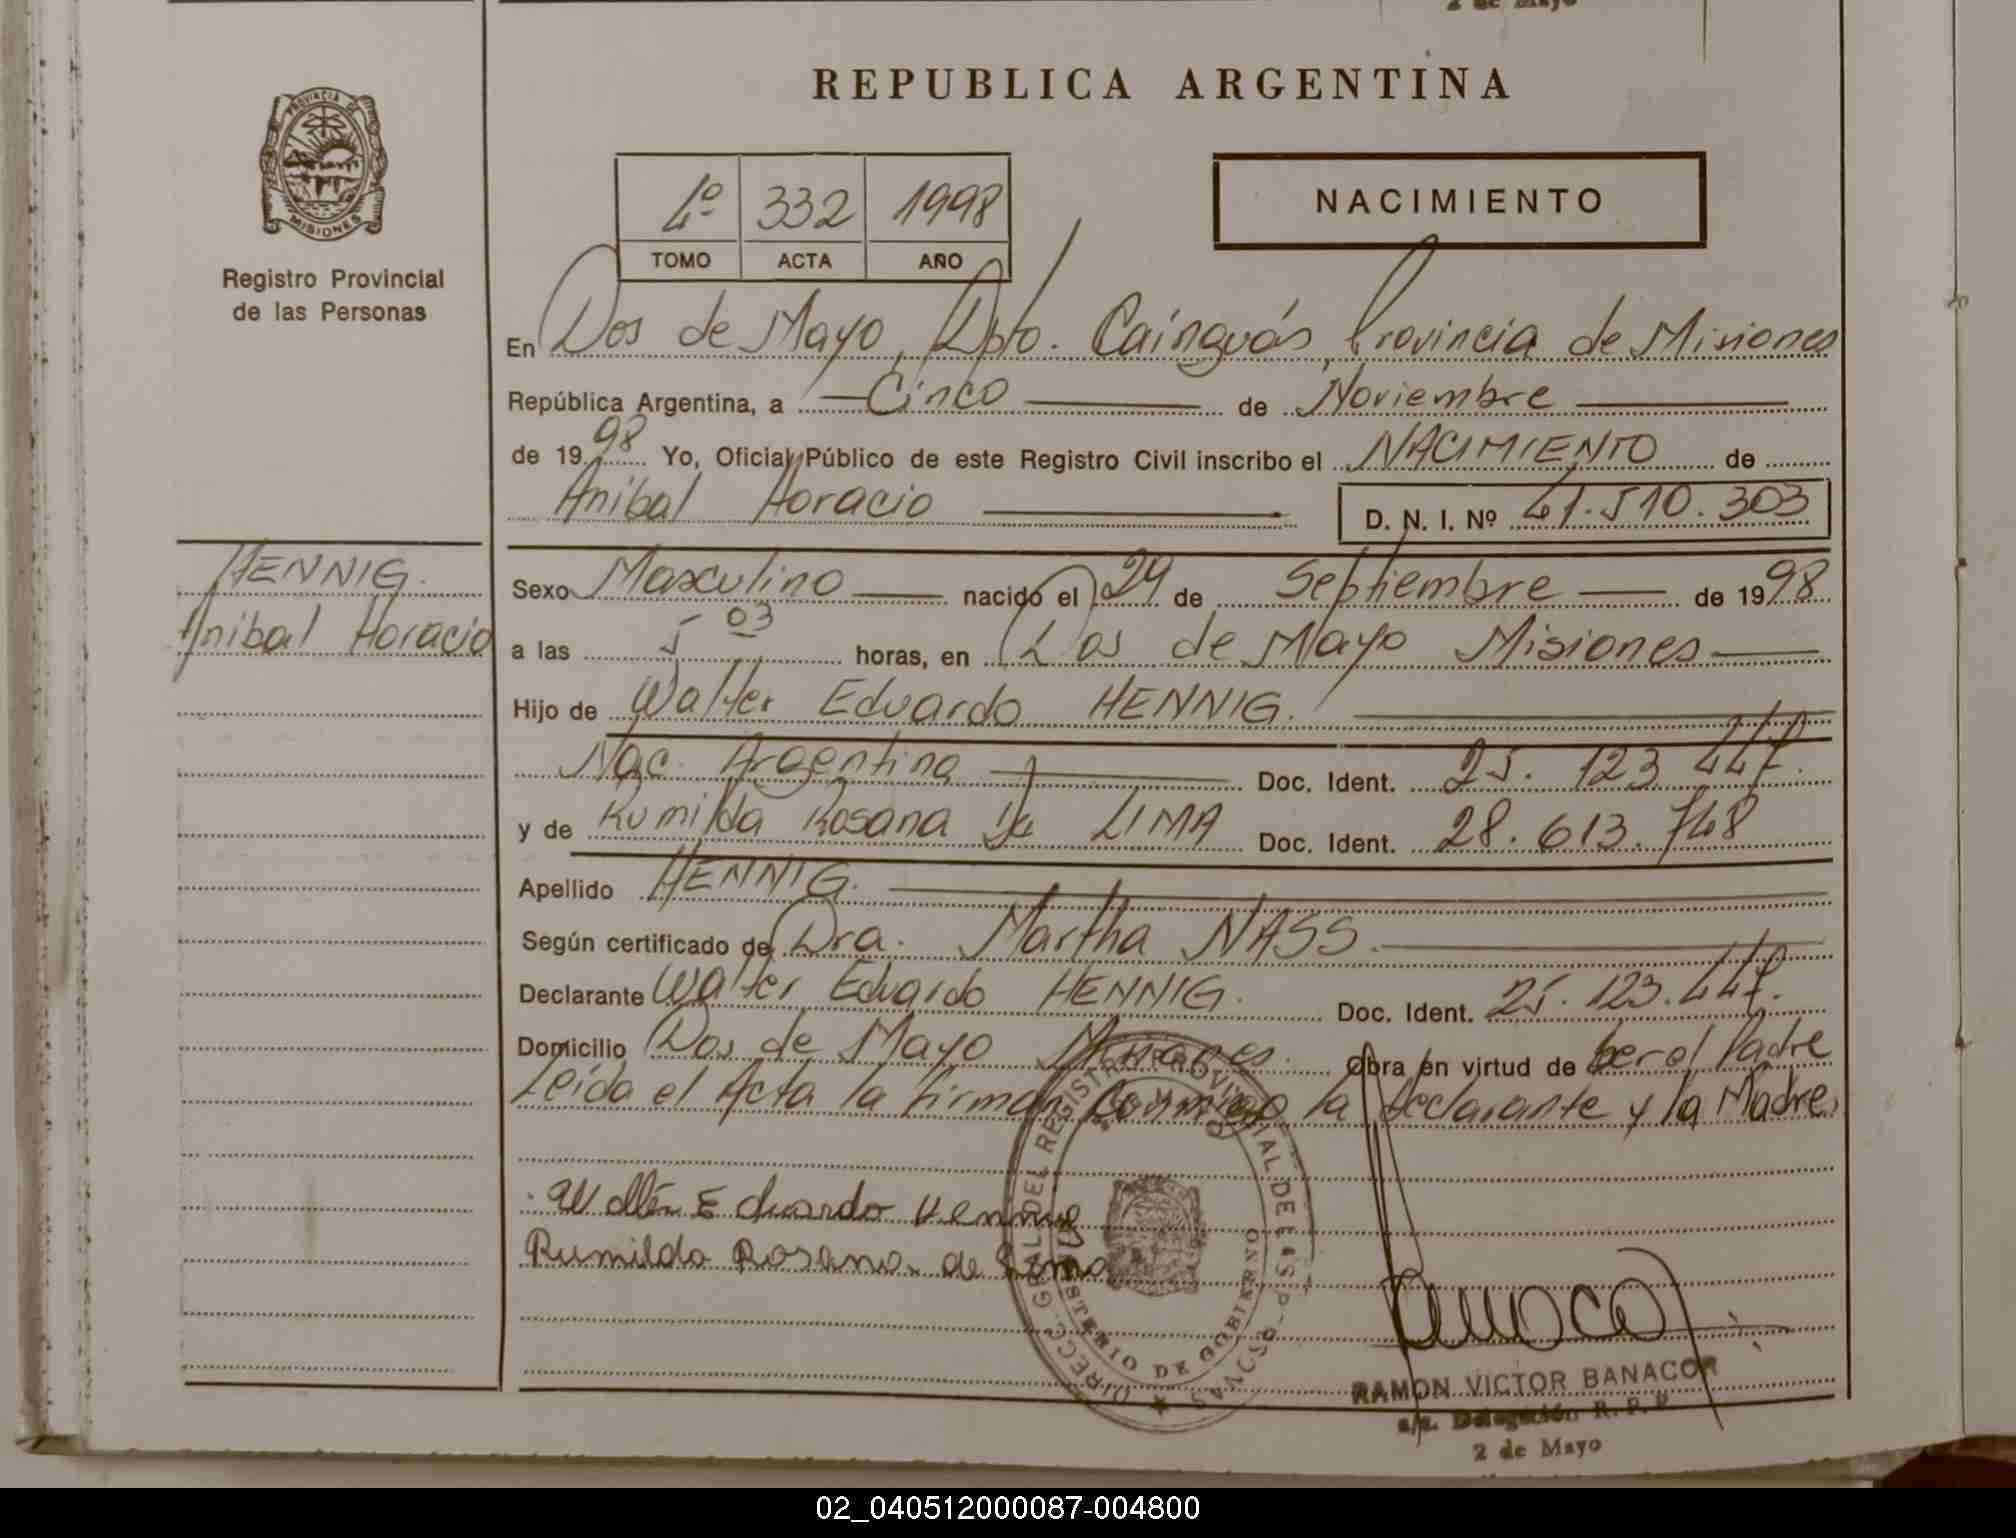 2 de Mayo
REPUBLICA ARGENTINA
PROVINCIA DE
MISIONES
Registro Provincial
de las Personas
4º 332 1998
TOMO ACTA AÑO
NACIMIENTO
En Dos de Mayo, Dpto. Cainguás, Provincia de Misiones
República Argentina, a Cinco de Noviembre
de 1998 Yo, Oficial Público de este Registro Civil inscribo el NACIMIENTO de
Anibal Horacio D. N. I. Nº 41.510.303
HENNIG.
Anibal Horacio
Sexo Masculino nacido el 29 de Septiembre de 1998
a las 5 03 horas, en Dos de Mayo Misiones
Hijo de Walter Eduardo HENNIG.
Nac. Argentina Doc. Ident. 25.123.447.
y de Rumilda Rosana De LIMA Doc. Ident. 28.613.748
Apellido HENNIG.
Según certificado de Dra. Martha NASS.
Declarante Walter Eduardo HENNIG. Doc. Ident. 25.123.447.
Domicilio Dos de Mayo Misiones. Obra en virtud de ser el Padre
Leída el Acta la firman conmigo la declarante y la Madre
Walter Eduardo Hennig
Rumilda Rosana de Lima
DIRECC. GRAL. DEL REGISTRO PROVINCIAL DE LAS PERSONAS
MINISTERIO DE GOBIERNO
RAMON VICTOR BANACOR
a/c. Delegación R. P. P.
2 de Mayo
02_040512000087-004800